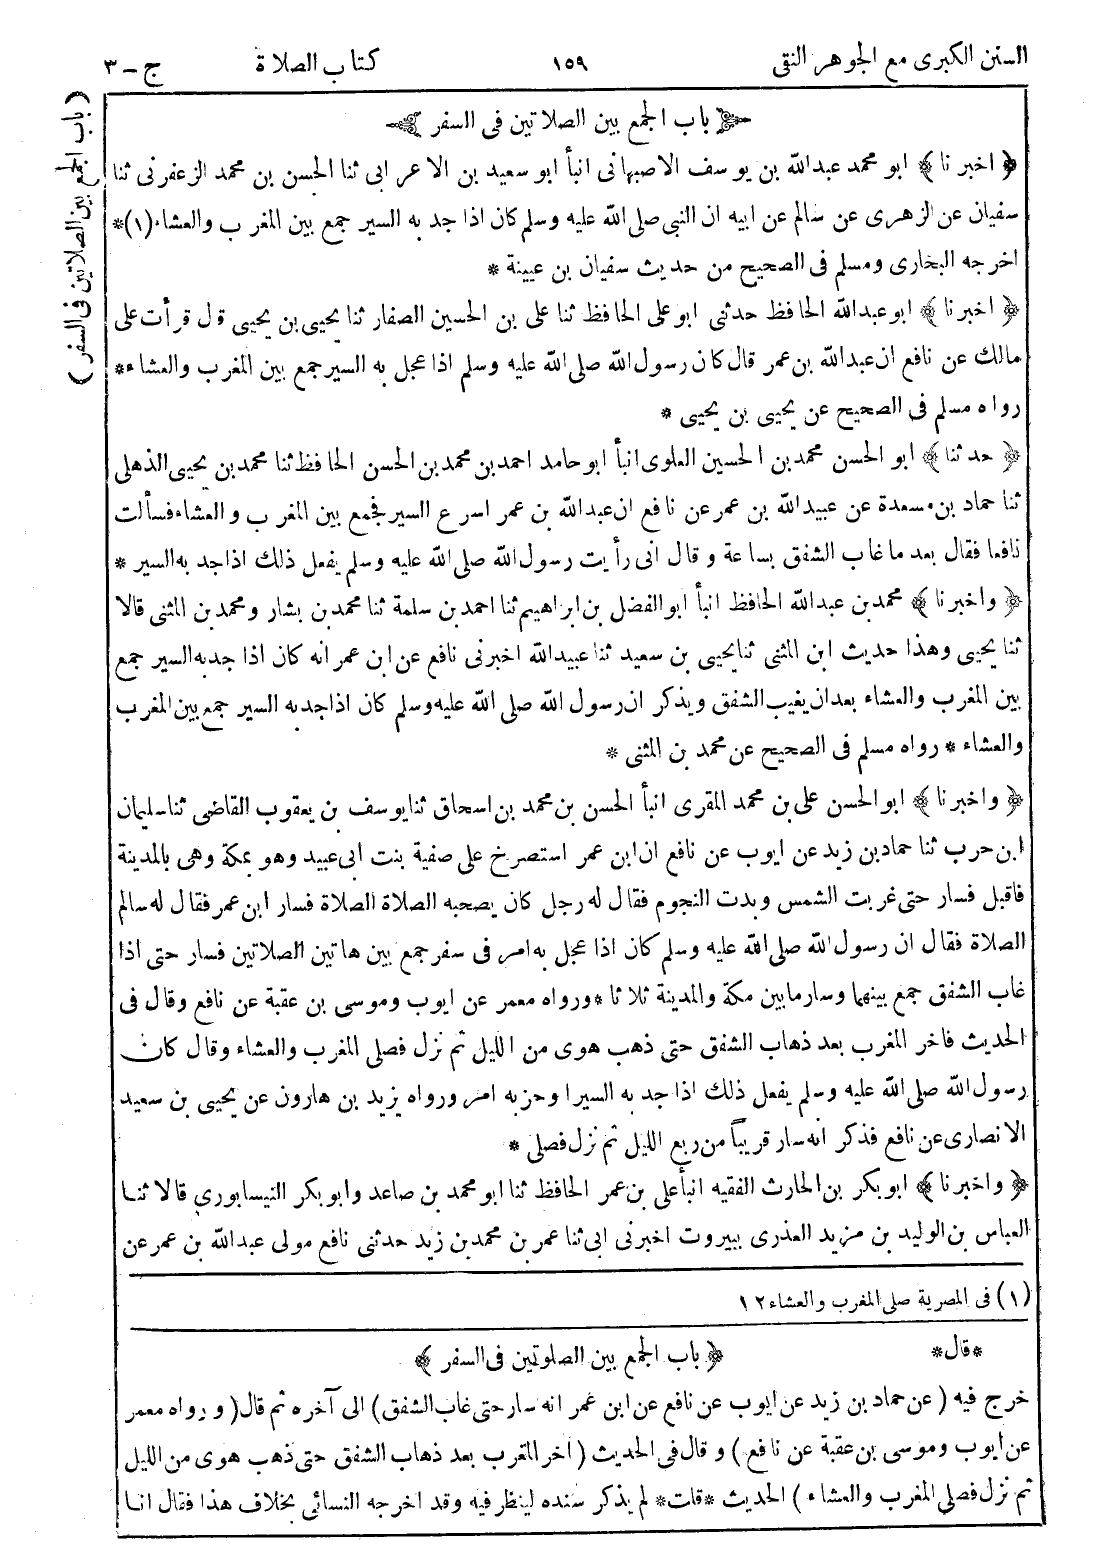 السنن الكبرى مع الجوهر النقى ١٥٩ كتاب الصلاة ج-٣
(باب الجمع بين الصلاتين فى السفر)
﴿باب الجمع بين الصلاتين فى السفر﴾
﴿اخبرنا﴾ ابو محمد عبدالله بن يوسف الاصبهانى انبأ ابو سعيد بن الاعرابى ثنا الحسن بن محمد الزعفرنى ثنا
سفيان عن الزهرى عن سالم عن ابيه ان النبى صلى الله عليه وسلم كان اذا جد به السير جمع بين المغرب والعشاء(١)*
اخرجه البخارى ومسلم فى الصحيح من حديث سفيان بن عيينة *
﴿اخبرنا﴾ ابو عبدالله الحافظ حدثنى ابو على الحافظ ثنا على بن الحسين الصفار ثنا يحيى بن يحيى قال قرأت على
مالك عن نافع ان عبدالله بن عمر قال كان رسول الله صلى الله عليه وسلم اذا عجل به السير جمع بين المغرب والعشاء*
رواه مسلم فى الصحيح عن يحيى بن يحيى *
﴿حدثنا﴾ ابو الحسن محمد بن الحسين العلوى انبأ ابو حامد احمد بن محمد بن الحسن الحافظ ثنا محمد بن يحيى الذهلى
ثنا حماد بن مسعدة عن عبيدالله بن عمر عن نافع ان عبدالله بن عمر اسرع السير فجمع بين المغرب والعشاء فسألت
نافعا فقال بعد ما غاب الشفق بساعة وقال انى رأيت رسول الله صلى الله عليه وسلم يفعل ذلك اذا جد به السير *
﴿واخبرنا﴾ محمد بن عبدالله الحافظ انبأ ابو الفضل بن ابراهيم ثنا احمد بن سلمة ثنا محمد بن بشار ومحمد بن المثنى قالا
ثنا يحيى وهذا حديث ابن المثنى ثنا يحيى بن سعيد ثنا عبيدالله اخبرنى نافع عن ابن عمر انه كان اذا جد به السير جمع
بين المغرب والعشاء بعد ان يغيب الشفق ويذكر ان رسول الله صلى الله عليه وسلم كان اذا جد به السير جمع بين المغرب
والعشاء * رواه مسلم فى الصحيح عن محمد بن المثنى *
﴿واخبرنا﴾ ابو الحسن على بن محمد المقرى انبأ الحسن بن محمد بن اسحاق ثنا يوسف بن يعقوب القاضى ثنا سليمان
ابن حرب ثنا حماد بن زيد عن ايوب عن نافع ان ابن عمر استصرخ على صفية بنت ابى عبيد وهو بمكة وهى بالمدينة
فاقبل فسار حتى غربت الشمس وبدت النجوم فقال له رجل كان يصحبه الصلاة الصلاة فسار ابن عمر فقال له سالم
الصلاة فقال ان رسول الله صلى الله عليه وسلم كان اذا عجل به امر فى سفر جمع بين هاتين الصلاتين فسار حتى اذا
غاب الشفق جمع بينهما وسار ما بين مكة والمدينة ثلاثا * ورواه معمر عن ايوب وموسى بن عقبة عن نافع وقال فى
الحديث فاخر المغرب بعد ذهاب الشفق حتى ذهب هوى من الليل ثم نزل فصلى المغرب والعشاء وقال كان
رسول الله صلى الله عليه وسلم يفعل ذلك اذا جد به السير او حزبه امر ورواه يزيد بن هارون عن يحيى بن سعيد
الانصارى عن نافع فذكر انه سار قريباً من ربع الليل ثم نزل فصلى *
﴿واخبرنا﴾ ابو بكر بن الحارث الفقيه انبأ على بن عمر الحافظ ثنا ابو محمد بن صاعد وابو بكر النيسابورى قالا ثنا
العباس بن الوليد بن مزيد العذرى ببيروت اخبرنى ابى ثنا عمر بن محمد بن زيد حدثنى نافع مولى عبدالله بن عمر عن
(١) فى المصرية صلى المغرب والعشاء ١٢
*قال* ﴿باب الجمع بين الصلوتين فى السفر﴾
خرج فيه (عن حماد بن زيد عن ايوب عن نافع عن ابن عمر انه سار حتى غاب الشفق) الى آخره ثم قال (ورواه معمر
عن ايوب وموسى بن عقبة عن نافع) وقال فى الحديث (اخر المغرب بعد ذهاب الشفق حتى ذهب هوى من الليل
ثم نزل فصلى المغرب والعشاء) الحديث *قلت* لم يذكر سنده لينظر فيه وقد اخرجه النسائى بخلاف هذا فقال انا